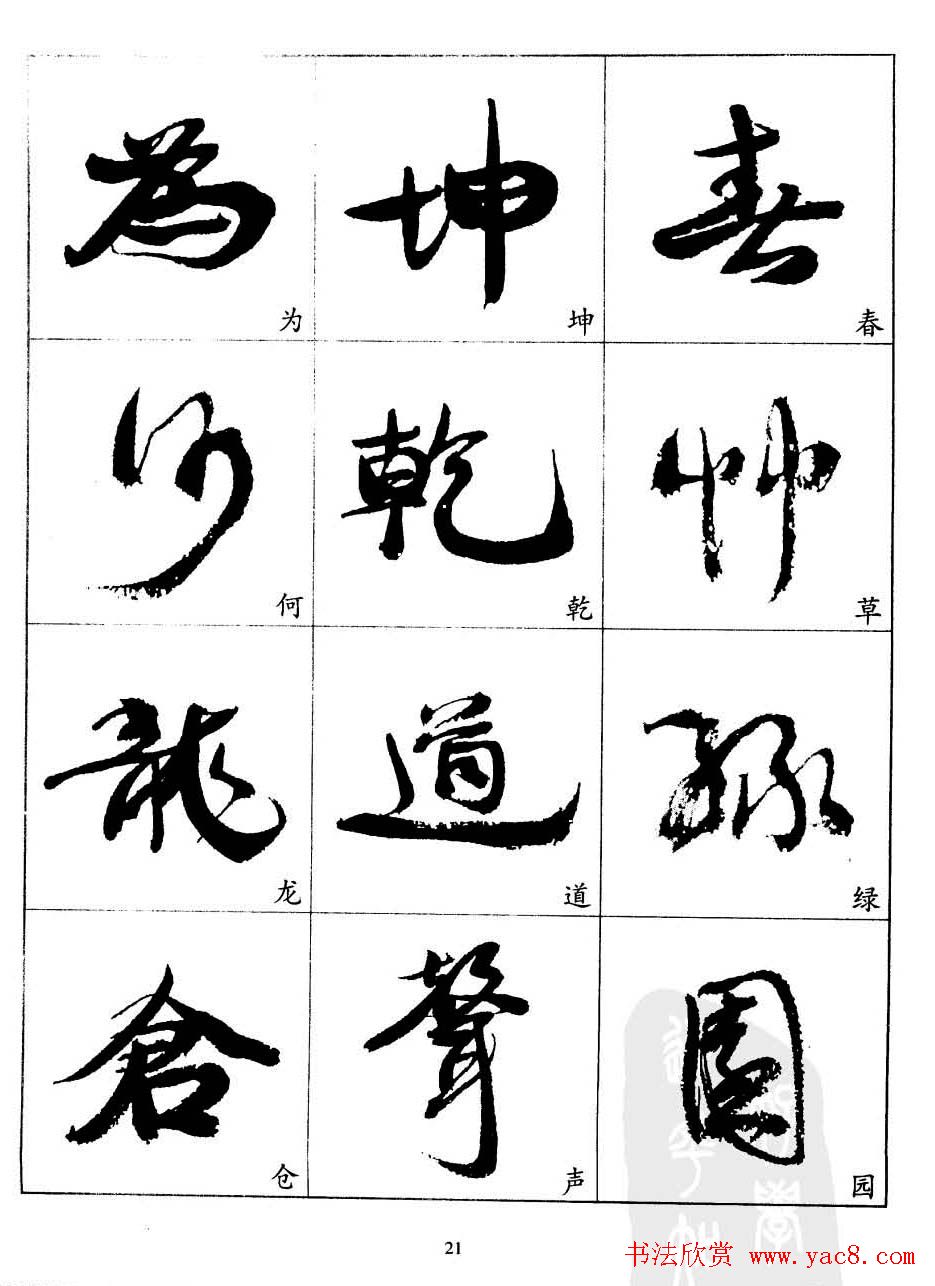 春
春
草
艸
绿
緑
园
園
坤
坤
乾
乾
道
道
声
聲
为
為
何
何
龙
龍
仓
倉
21
书法欣赏 www.yac8.com